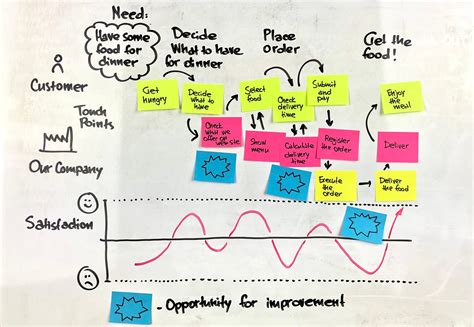 Need:
Have some
food for
dinner
Decide
What to have
for dinner
Place
order
Get the
food!
Customer
Get
hungry
Decide
what to have
Select
food
Check
delivery
time
Submit
and
pay
Enjoy
the
meal
Touch
Points
Check
what we
offer on
website
Show
menu
Calculate
delivery
time
Register
the order
Deliver
Our Company
Execute
the
order
Deliver
the food
Satisfaction
- Opportunity for improvement